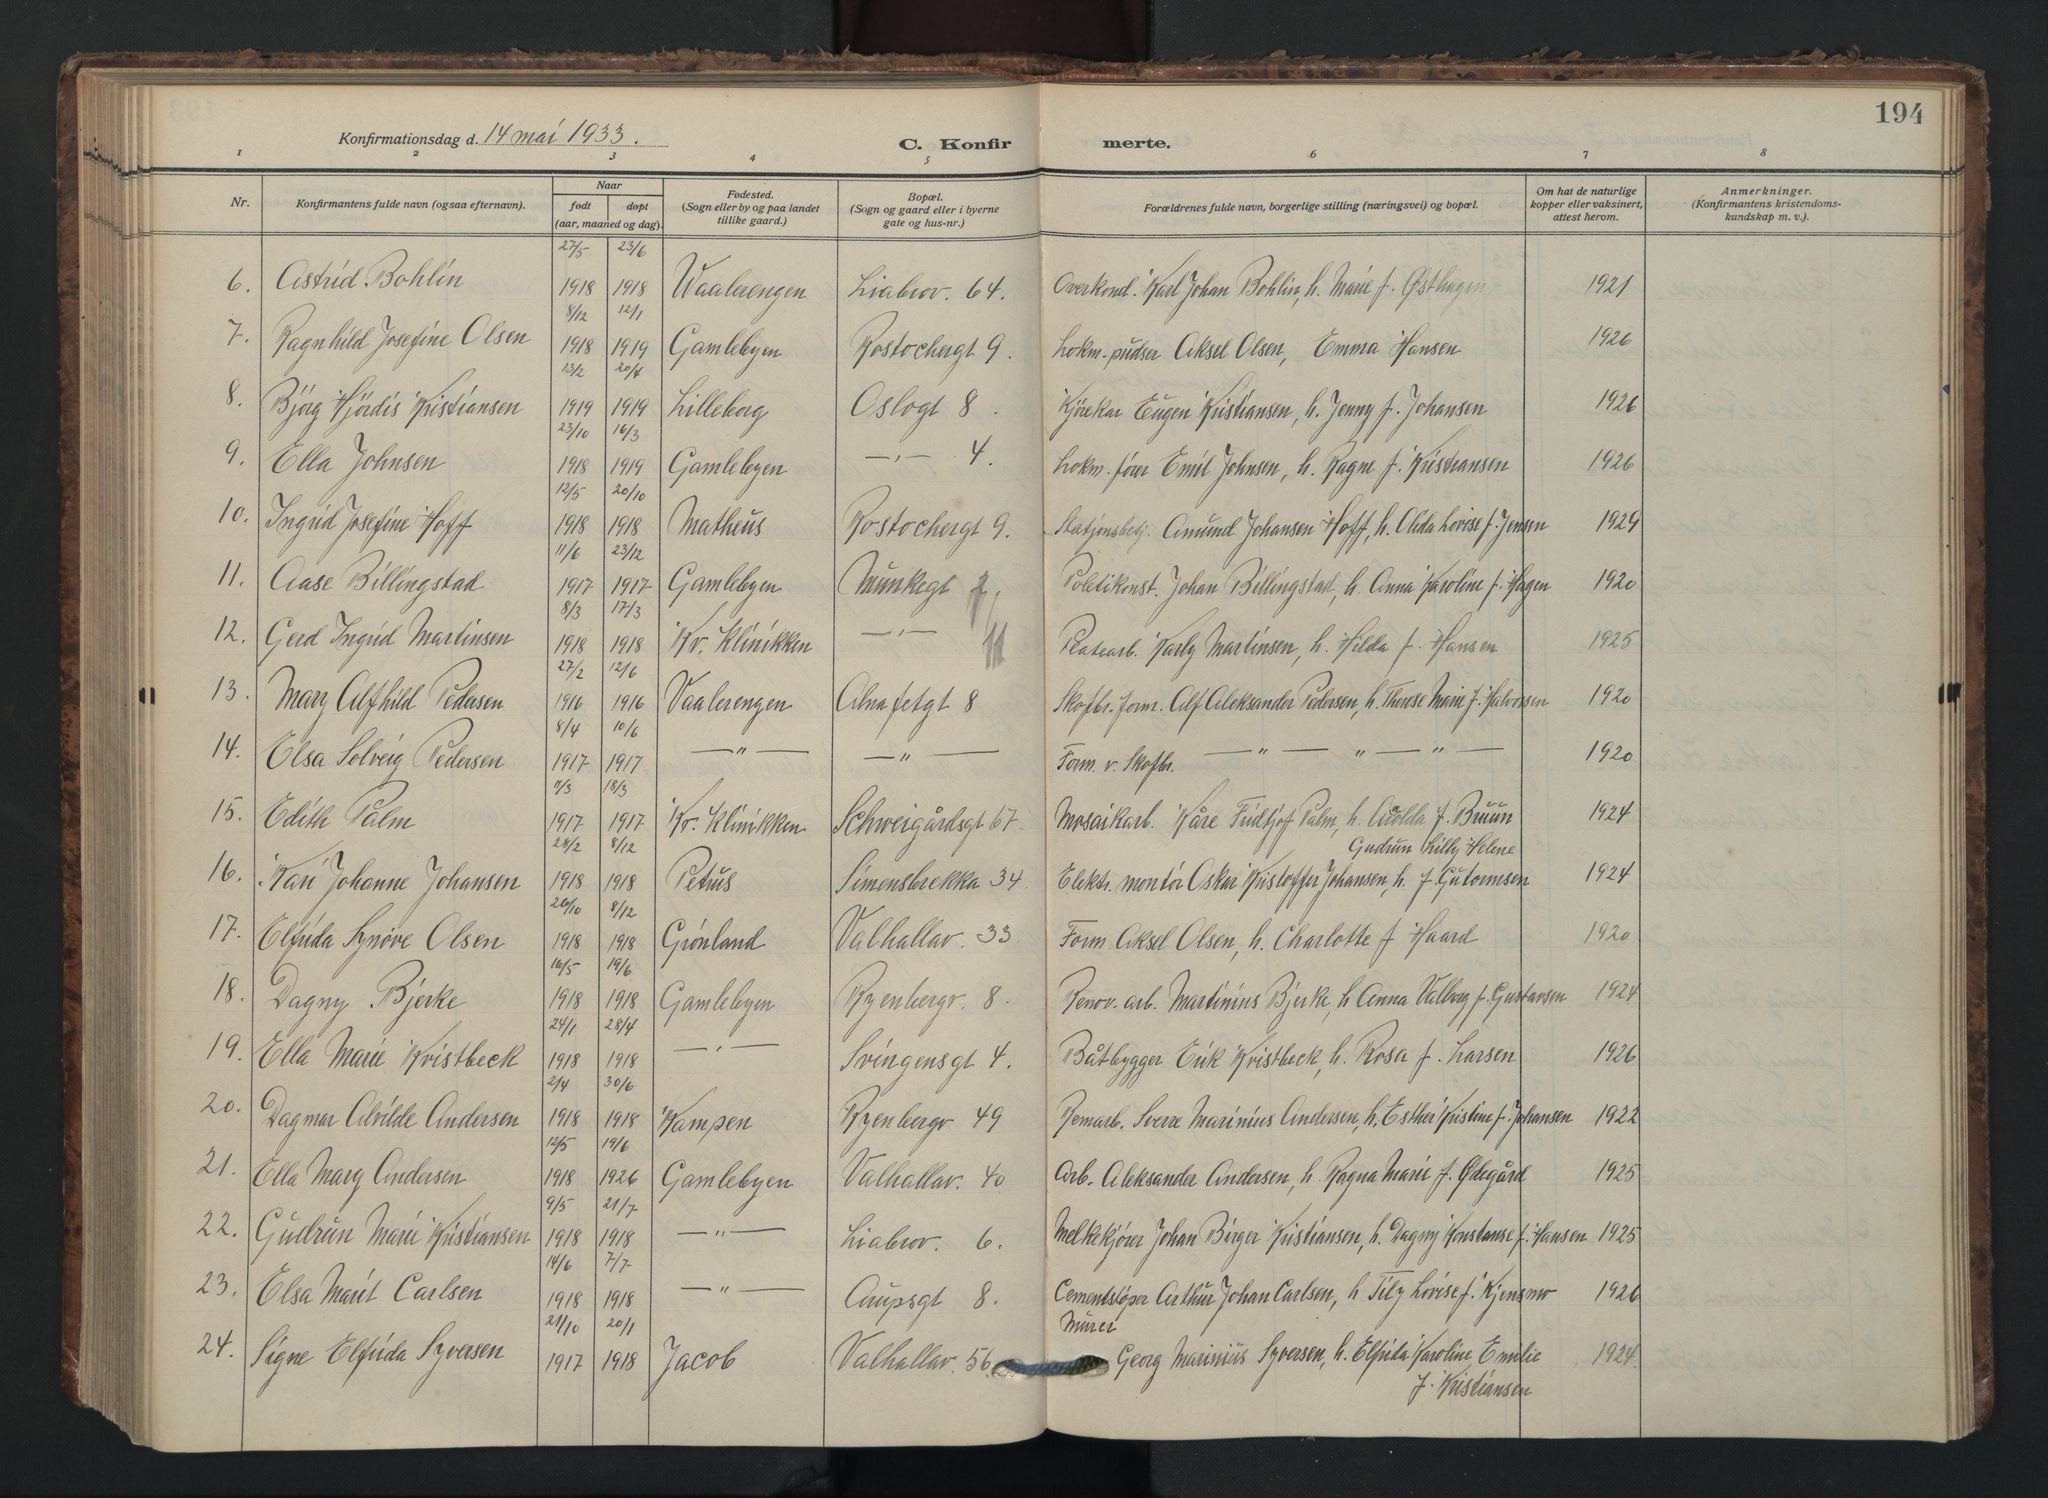 194
Konfirmationsdag d. 14 mai 1933.
C. Konfirmerte.
1 2 3 4 5 6 7 8
Nr. Konfirmantens fulde navn (ogsaa efternavn). Naar født døpt (aar, maaned og dag) Fødested. (Sogn eller by og paa landet tillike gaard.) Bopæl. (Sogn og gaard eller i byerne gate og hus-nr.) Forældrenes fulde navn, borgerlige stilling (næringsvei) og bopæl. Om hat de naturlige kopper eller vaksinert, attest herom. Anmerkninger. (Konfirmantens kristendomskundskap m. v.).
27/5 23/6
6. Astrid Bohlin 1918 1918 Waalerengen Liabrov. 64. Overkond. Karl Johan Bohlin, h. Marie f. Østhagen 1921
8/12 12/1
7. Ragnhild Josefine Olsen 1918 1919 Gamlebyen Rostochergt 9. Lokm.-pudser Aksel Olsen, Emma Hansen 1926
13/2 20/4
8. Bjørg Hjördis Kristiansen 1919 1919 Lilleborg Oslogt 8. Kjørekar Eugen Kristiansen, h. Jenny f. Johansen 1926
23/10 16/3
9. Ella Johnsen 1918 1919 Gamlebyen —"— 4. Lokm.-fører Emil Johnsen, h. Ragne f. Kristiansen 1926
12/5 20/10
10. Ingrid Josefine Hoff 1918 1918 Matheus Rostochergt 9. Stasjonsbetj. Amund Johansen Hoff, h. Olida Lovise f. Jensen 1929
11/6 23/12
11. Aase Billingstad 1917 1917 Gamlebyen Munkegt Politikonst. Johan Billingstad, h. Anna Karoline f. Hagen 1920
8/3 17/3
12. Gerd Ingrid Martinsen 1918 1918 Kv. Klinikken —"— 11 Platearb. Karly Martinsen, h. Hilda f. Hansen 1925
27/2 12/6
13. Mary Alfhild Pedersen 1916 1916 Vaalerengen Alnafetgt 8 Skofbr. form. Alf Aleksander Pedersen, h. Therese Marie f. Halvorsen 1920
8/4 10/6
14. Elsa Solveig Pedersen 1917 1917 —"— —"— Form. v. Skofbr. —"— "—"— 1920
11/3 18/3
15. Edith Palm 1917 1917 Kv. Klinikken Schweigårdsgt 67. Mosaikarb. Kåre Fridtjof Palm, h. f. Bruun 1924
28/2 8/12 Gudrun Lilly Helene
16. Kari Johanne Johansen 1918 1918 Petrus Simensbrekka 34 Elektr. montør Oskar Kristoffer Johansen, h. f. Gutormsen 1924
26/10 8/12
17. Elfrida Synøve Olsen 1918 1918 Grønland Valhallav. 33 Form. Aksel Olsen, h. Charlotte f. Haard 1920
16/5 19/6
18. Dagny Bjerke 1918 1918 Gamlebyen Ryenbergv. 8. Renov. arb. Martinius Bjerke, h Anna Valborg f. Gustavsen 1924
24/1 28/4
19. Ella Marie Kvistbeck 1918 1918 —"— Svingensgt 4. Båtbygger Erik Kvistbeck, h. Rosa f. Larsen 1926
2/4 30/6
20. Dagmar Alvilde Andersen 1918 1918 Kampen Ryenbergv 49 Remarb. Sverre Marinius Andersen, h. Esther Kristine f. Johansen 1922
12/5 19/6
21. Ella Mary Andersen 1918 1926 Gamlebyen Valhallav. 40 Arb. Aleksander Andersen, h. Ragna Marie f. Ødegård 1925
9/5 21/7
22. Gudrun Marie Kristiansen 1918 1918 —"— Liabrov. 6. Melkekjører Johan Birger Kristiansen, h. Dagny Konstanse f. Hansen 1925
14/6 7/7
23. Elsa Marit Carlsen 1918 1918 —"— Arupsgt 8. Cementstøper Arthur Johan Carlsen, h Tily Lovise f. Kjensmo 1926
21/10 20/1 Murer
24. Signe Elfrida Syversen 1917 1918 Jacob Valhallav. 56 Georg Marinius Syversen, h. Elfrida Karoline Emilie 1924
f. Kristiansen